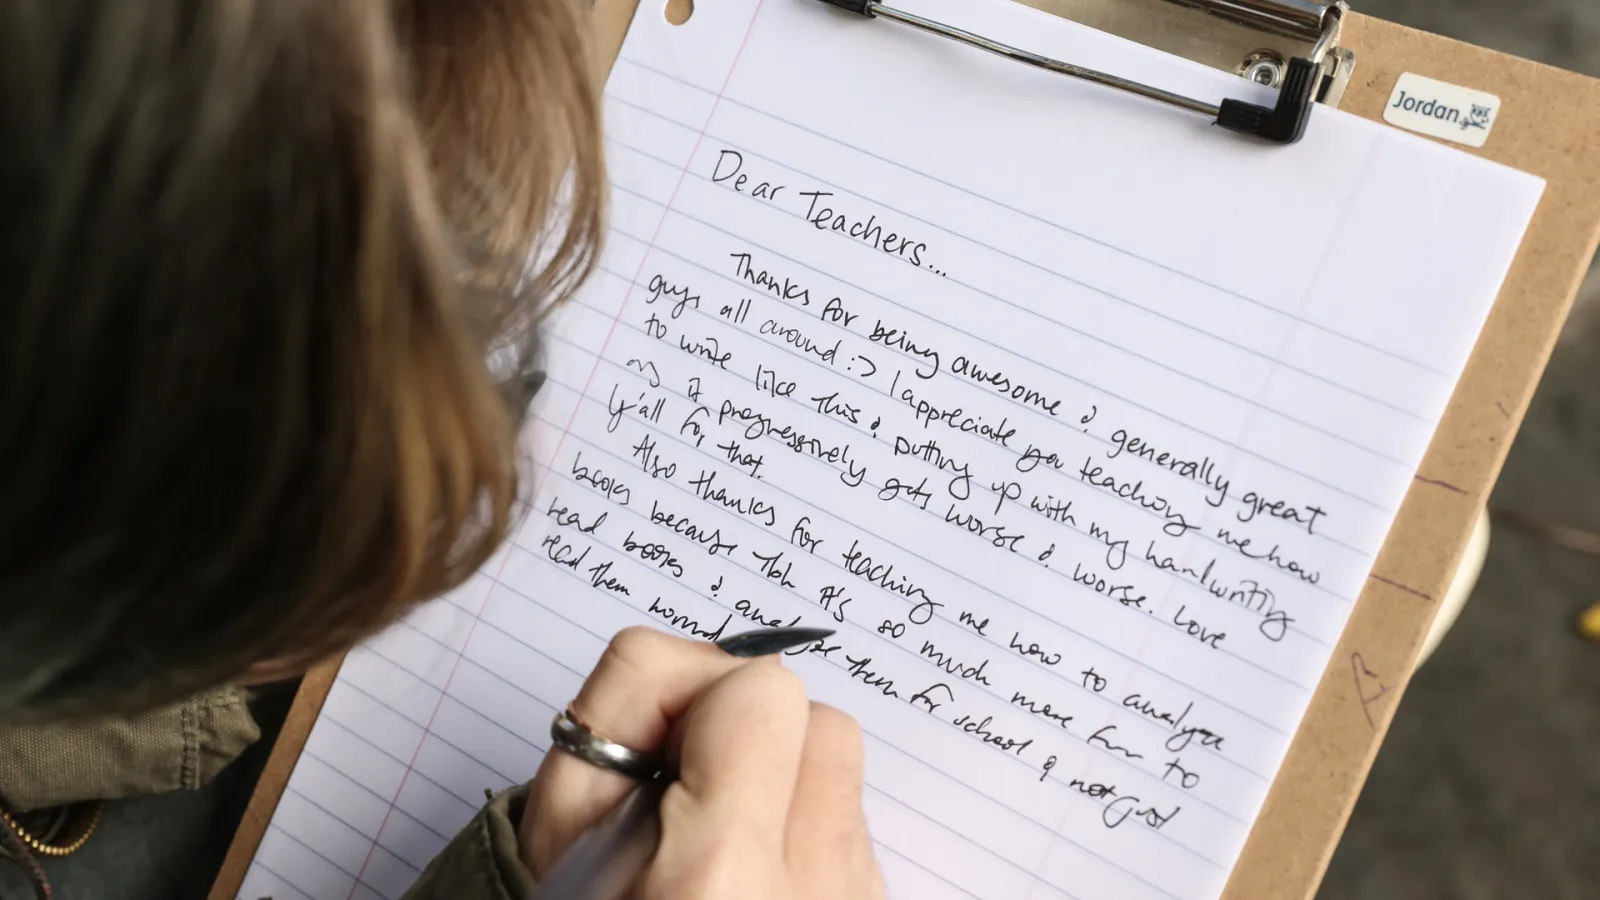 Jordan
Dear Teachers...
Thanks for being awesome & generally great
guys all around :) I appreciate you teaching me how
to write like this & putting up with my handwriting
as it progressively gets worse & worse. Love
y'all for that.
Also thanks for teaching me how to analyze
books because tbh it's so much more fun to
read books & analyze them for school & not just
read them